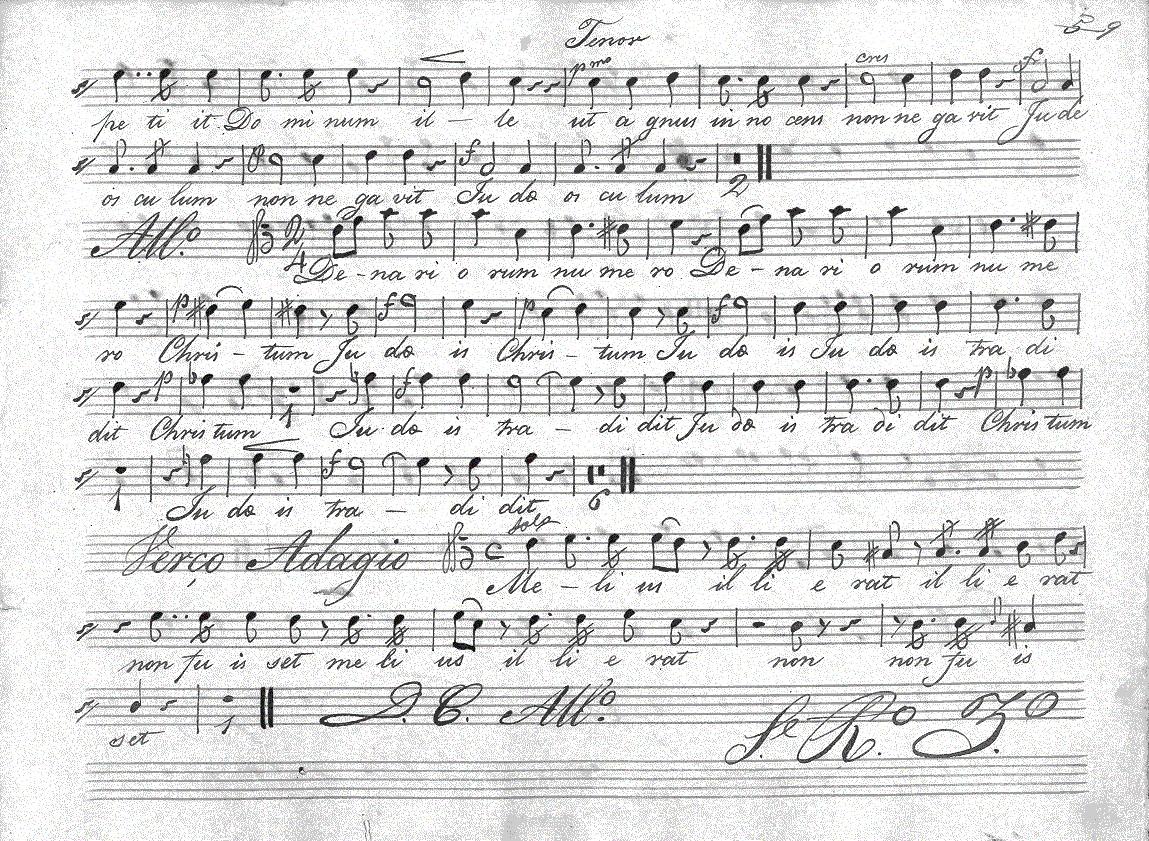 Tenor
5 9
cres
pe ti it Do mi num il - le ut a gnus in no cens non ne ga vit Ju de
os cu lum non ne ga vit Ju da os cu lum 2
All.o 2 4
De - na ri o rum nu me ro De - na ri o rum nu me
ro Chris - tum Ju da is Chris - tum Ju da is Ju da is tra di
dit Chris tum 1 Ju da is tra - di dit Ju da is tra di dit Chris tum
1 Ju da is tra - di dit 6
Verço Adagio C solo
Me - li us il li e rat il li e rat
non fu is set me li us il li e rat non non fu is
set 1 D. C. All.o
S.e R.o 3.o